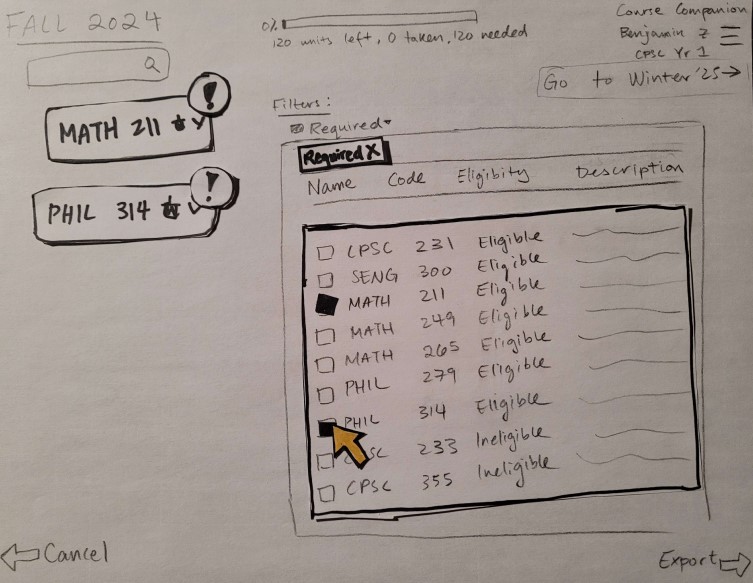 FALL 2024
MATH 211
!
PHIL 314
!
0%
120 units left, 0 taken, 120 needed
Course Companion
Benjamin Z
CPSC Yr 1
Go to Winter '25→
Filters:
Required
Required X
Name Code Eligibity Description
CPSC 231 Eligible
SENG 300 Eligible
MATH 211 Eligible
MATH 249 Eligible
MATH 265 Eligible
PHIL 279 Eligible
PHIL 314 Eligible
233 Ineligible
CPSC 355 Ineligible
Cancel
Export